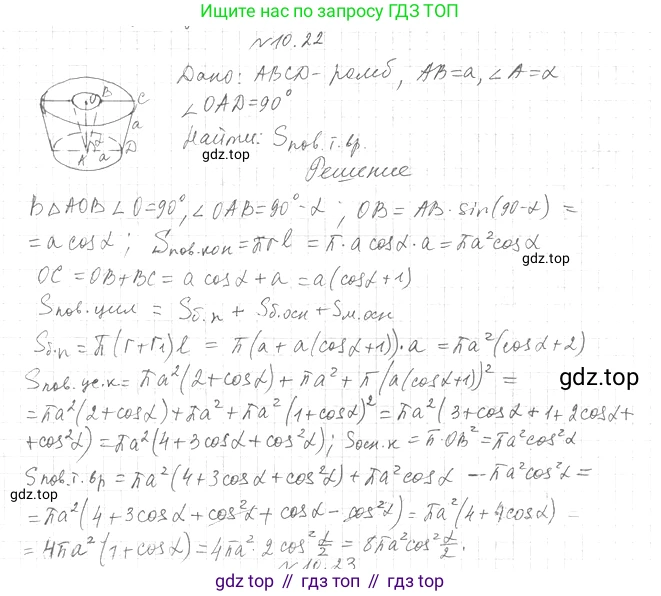 Ищите нас по запросу ГДЗ ТОП
№10.22
Дано: ABCD - ромб, AB=a, ∠A=α
∠OAD=90°
Найти: Sпов.т.вр.
gdz.top
Решение
O B C a A α a D
В △AOB ∠O=90°, ∠OAB=90°-α; OB = AB·sin(90-α) =
= a cosα; Sпов.кон = πrl = π·a cosα·a = πa²cosα
gdz.top
OC = OB+BC = a cosα+a = a(cosα+1)
Sпов.цил = Sб.п + Sб.осн + Sм.осн
Sб.п = π(r+r₁)l = π(a+a(cosα+1))·a = πa²(cosα+2)
Sпов.ус.к = πa²(2+cosα)+πa²+π(a(cosα+1))² =
gdz.top
=πa²(2+cosα)+πa²+πa²(1+cosα)²=πa²(3+cosα+1+2cosα+
+cos²α)=πa²(4+3cosα+cos²α); Sосн.к = π·OB²=πa²cos²α
Sпов.т.вр = πa²(4+3cosα+cos²α)+πa²cosα - πa²cos²α =
gdz.top
=πa²(4+3cosα+cos²α+cosα-cos²α)=πa²(4+4cosα) =
= 4πa²(1+cosα)=4πa²·2cos²α/2 = 8πa²cos²α/2.
№10.23
gdz.top // gdz.top // gdz.top // gdz.top